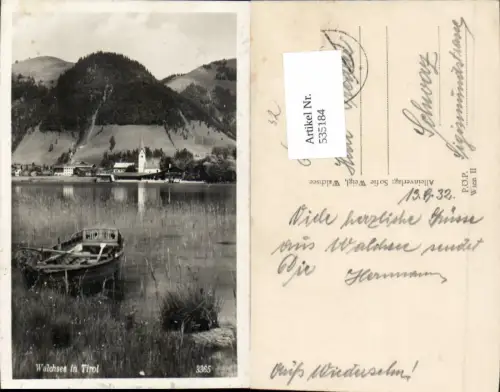 Walchsee in Tirol
3365
Artikel Nr.
535184
Schwarz
Alleinverlag: Sofie Weigl, Walchsee
P.O.P.
Wien II
13.9.32.
Viele herzliche Grüsse
aus Walchsee sendet
Dir Hermann
Auf Wiedersehn!